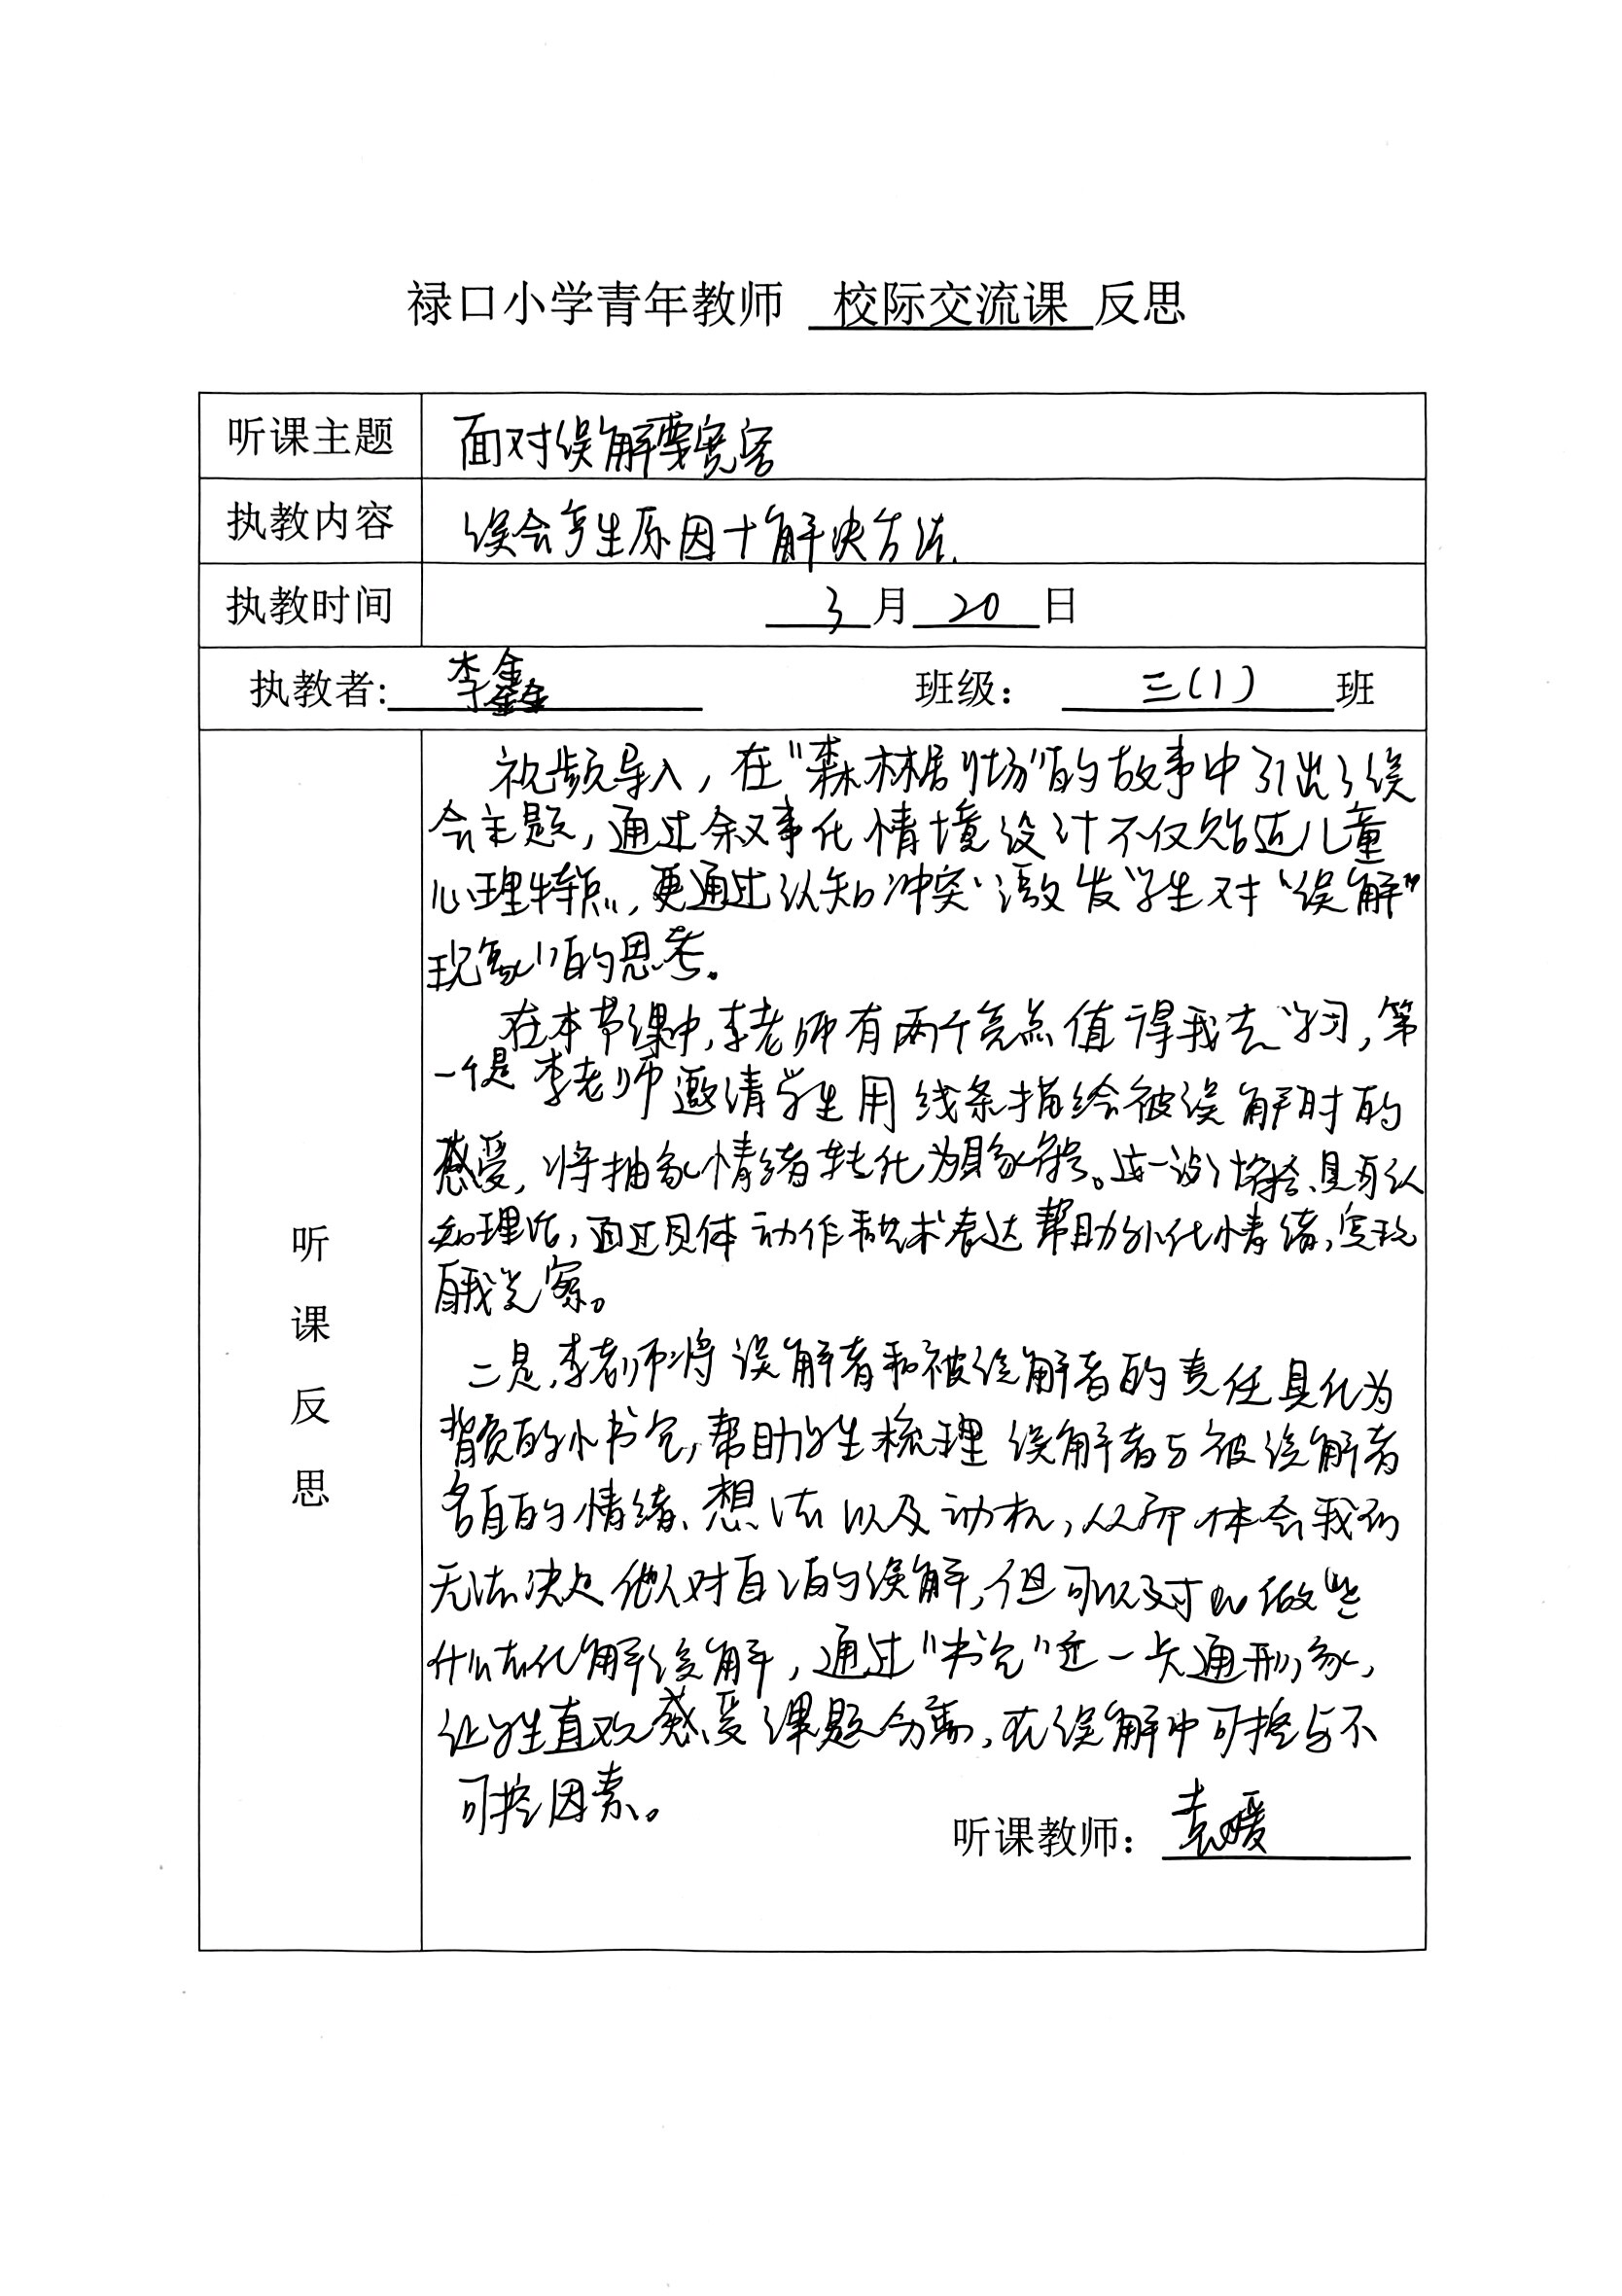 禄口小学青年教师 校际交流课 反思
听课主题 面对误解要宽容
执教内容 误会产生原因+解决方法.
执教时间 3月20日
执教者: 李鑫 班级： 三(1) 班
听课反思
视频导入，在“森林剧场”的故事中引出了误
会主题，通过叙事化情境设计不仅贴近儿童
心理特点，更通过认知冲突“激发学生对“误解”
现象”的思考。
在本节课中，李老师有两个亮点值得我去学习，第
一个是李老师邀请学生用线条描绘被误解时的
感受，将抽象情绪转化为具象符号。这一设计契合具身认
知理论，通过具体动作和艺术表达帮助外化情绪，实现
自我觉察。
二是，李老师将误解者和被误解者的责任具化为
背负的小书包，帮助学生梳理误解者与被误解者
各自的情绪、想法以及动机，从而体会我们
无法决定他人对自己的误解，但可以对此做些
什么去化解误解，通过“书包”这一卡通形象，
让学生直观感受课题分离，在误解中可控与不
可控因素。
听课教师： 袁媛